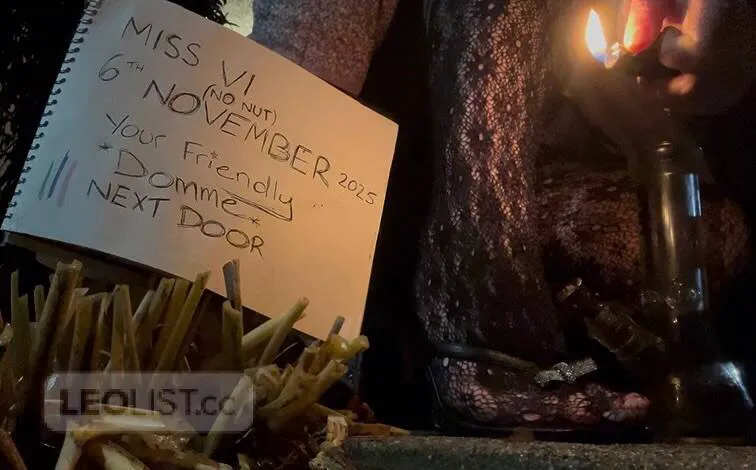 MISS VI
(NO NUT)
6TH NOVEMBER 2025
Your Friendly
*Domme*
NEXT DOOR
LEOLIST.cc